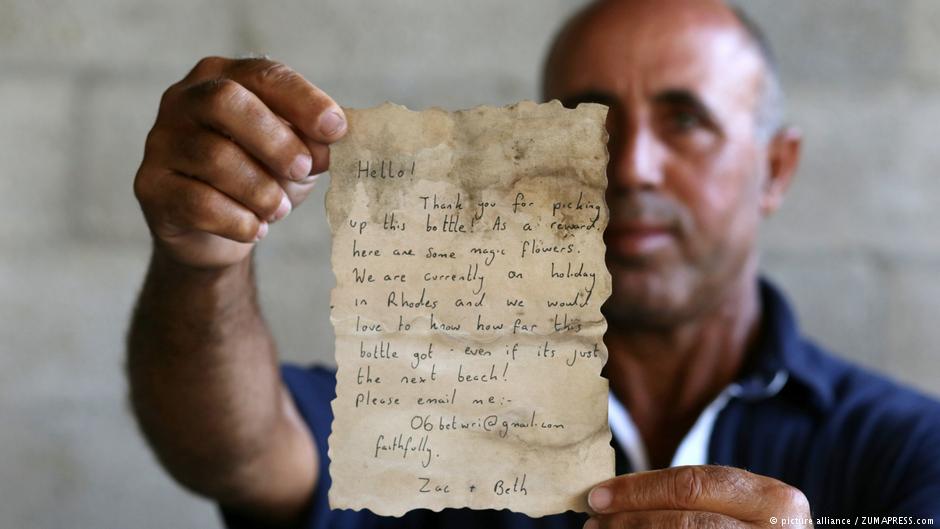 Hello!
Thank you for picking
up this bottle! As a reward,
here are some magic flowers.
We are currently on holiday
in Rhodes and we would
love to know how far this
bottle got - even if its just
the next beach!
Please email me:-
06betwri@gmail.com
faithfully.
Zac + Beth
© picture alliance / ZUMAPRESS.com